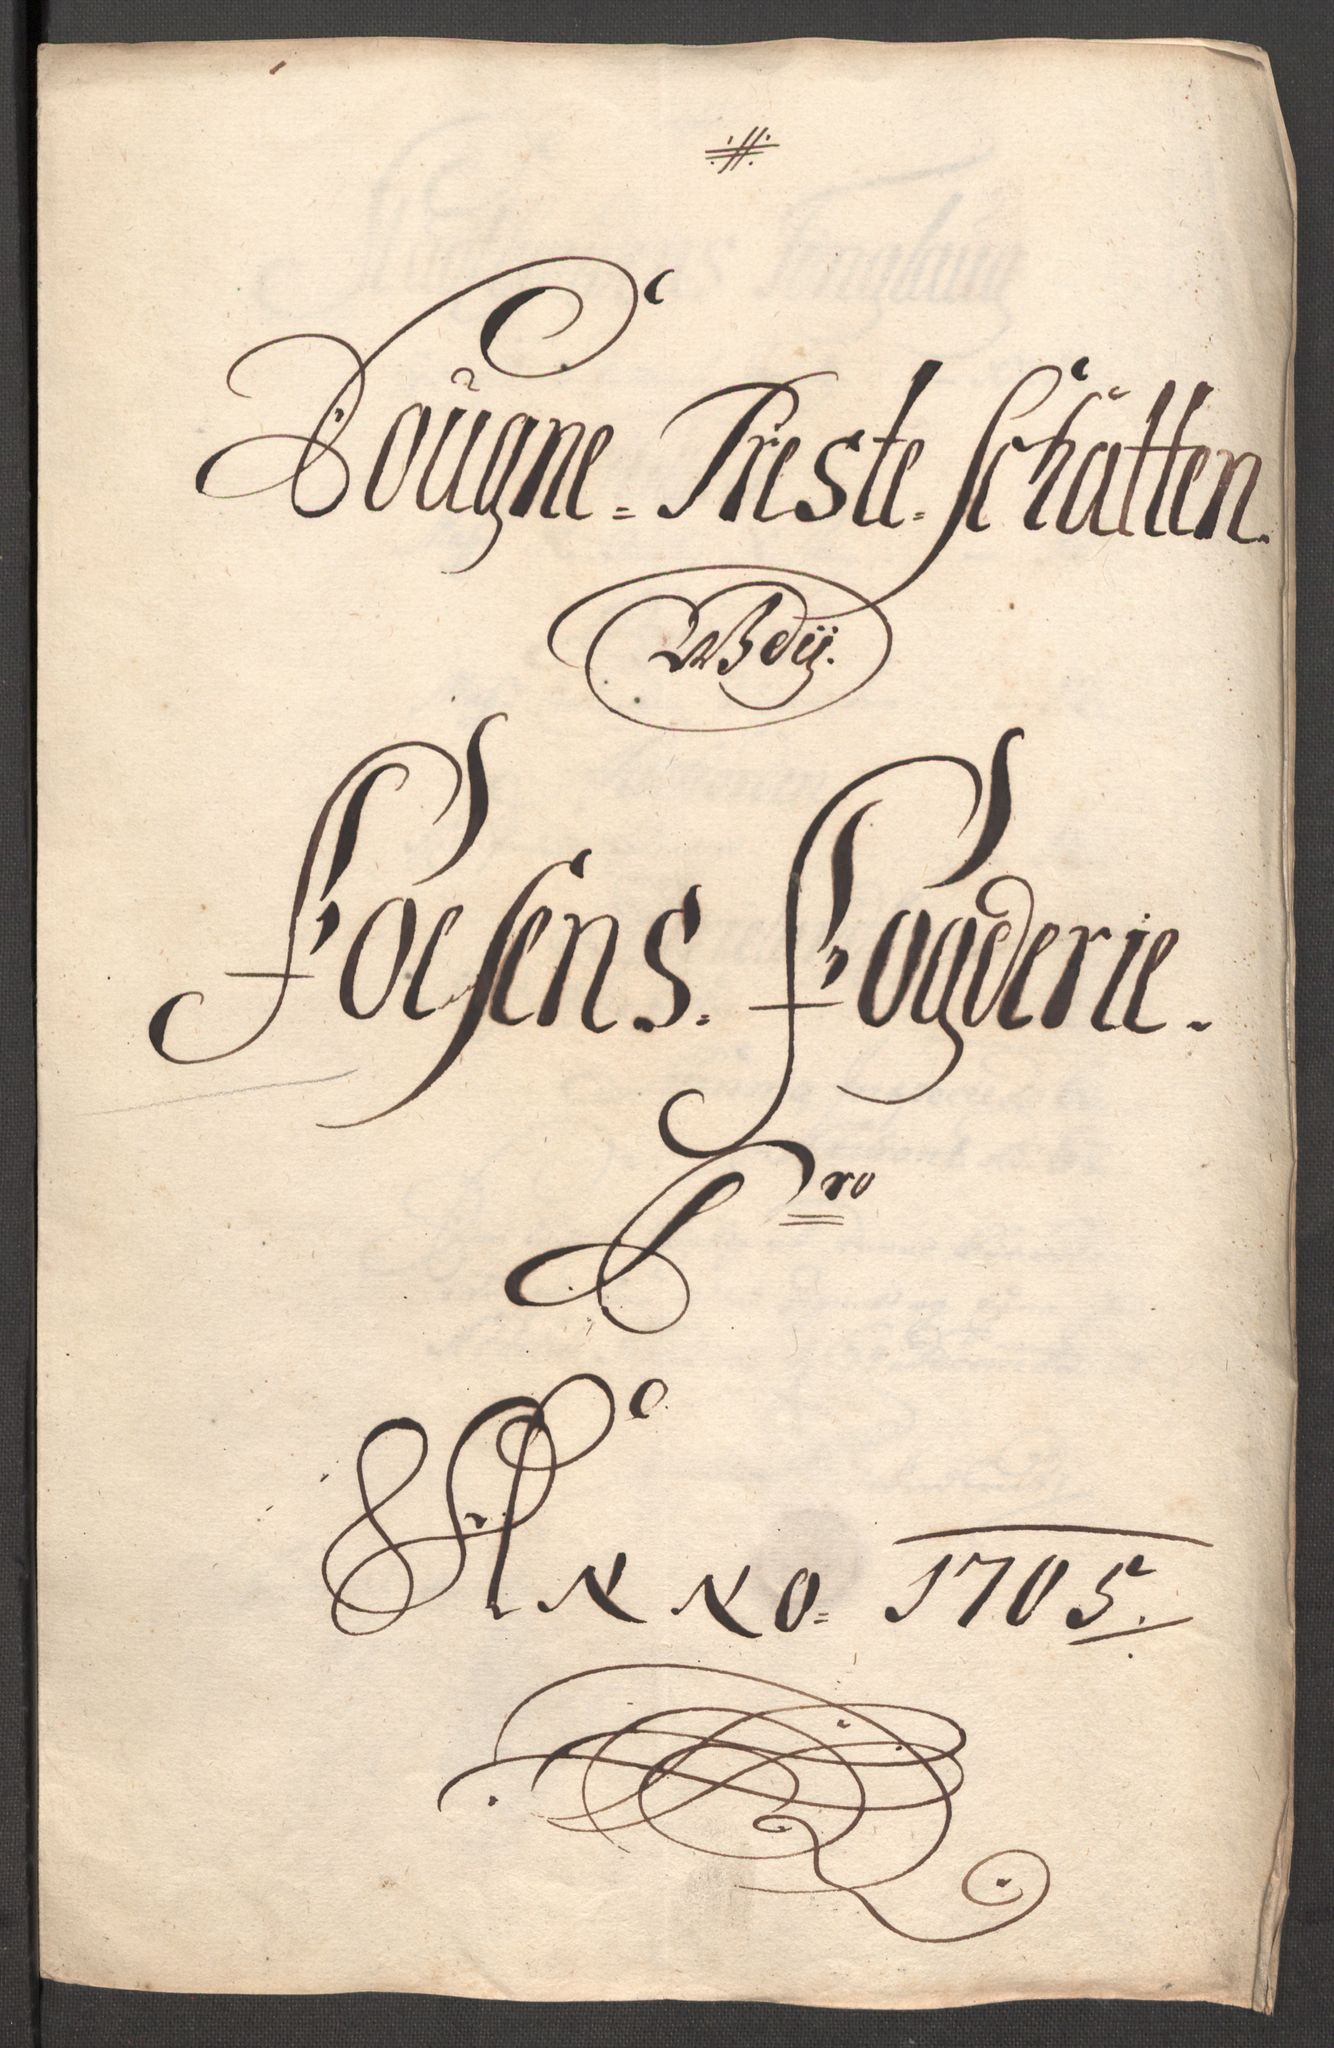 Dougne= Preste= Schatten.
Udj
Foesens. Fogderie.
Pro
Anno= 1705.